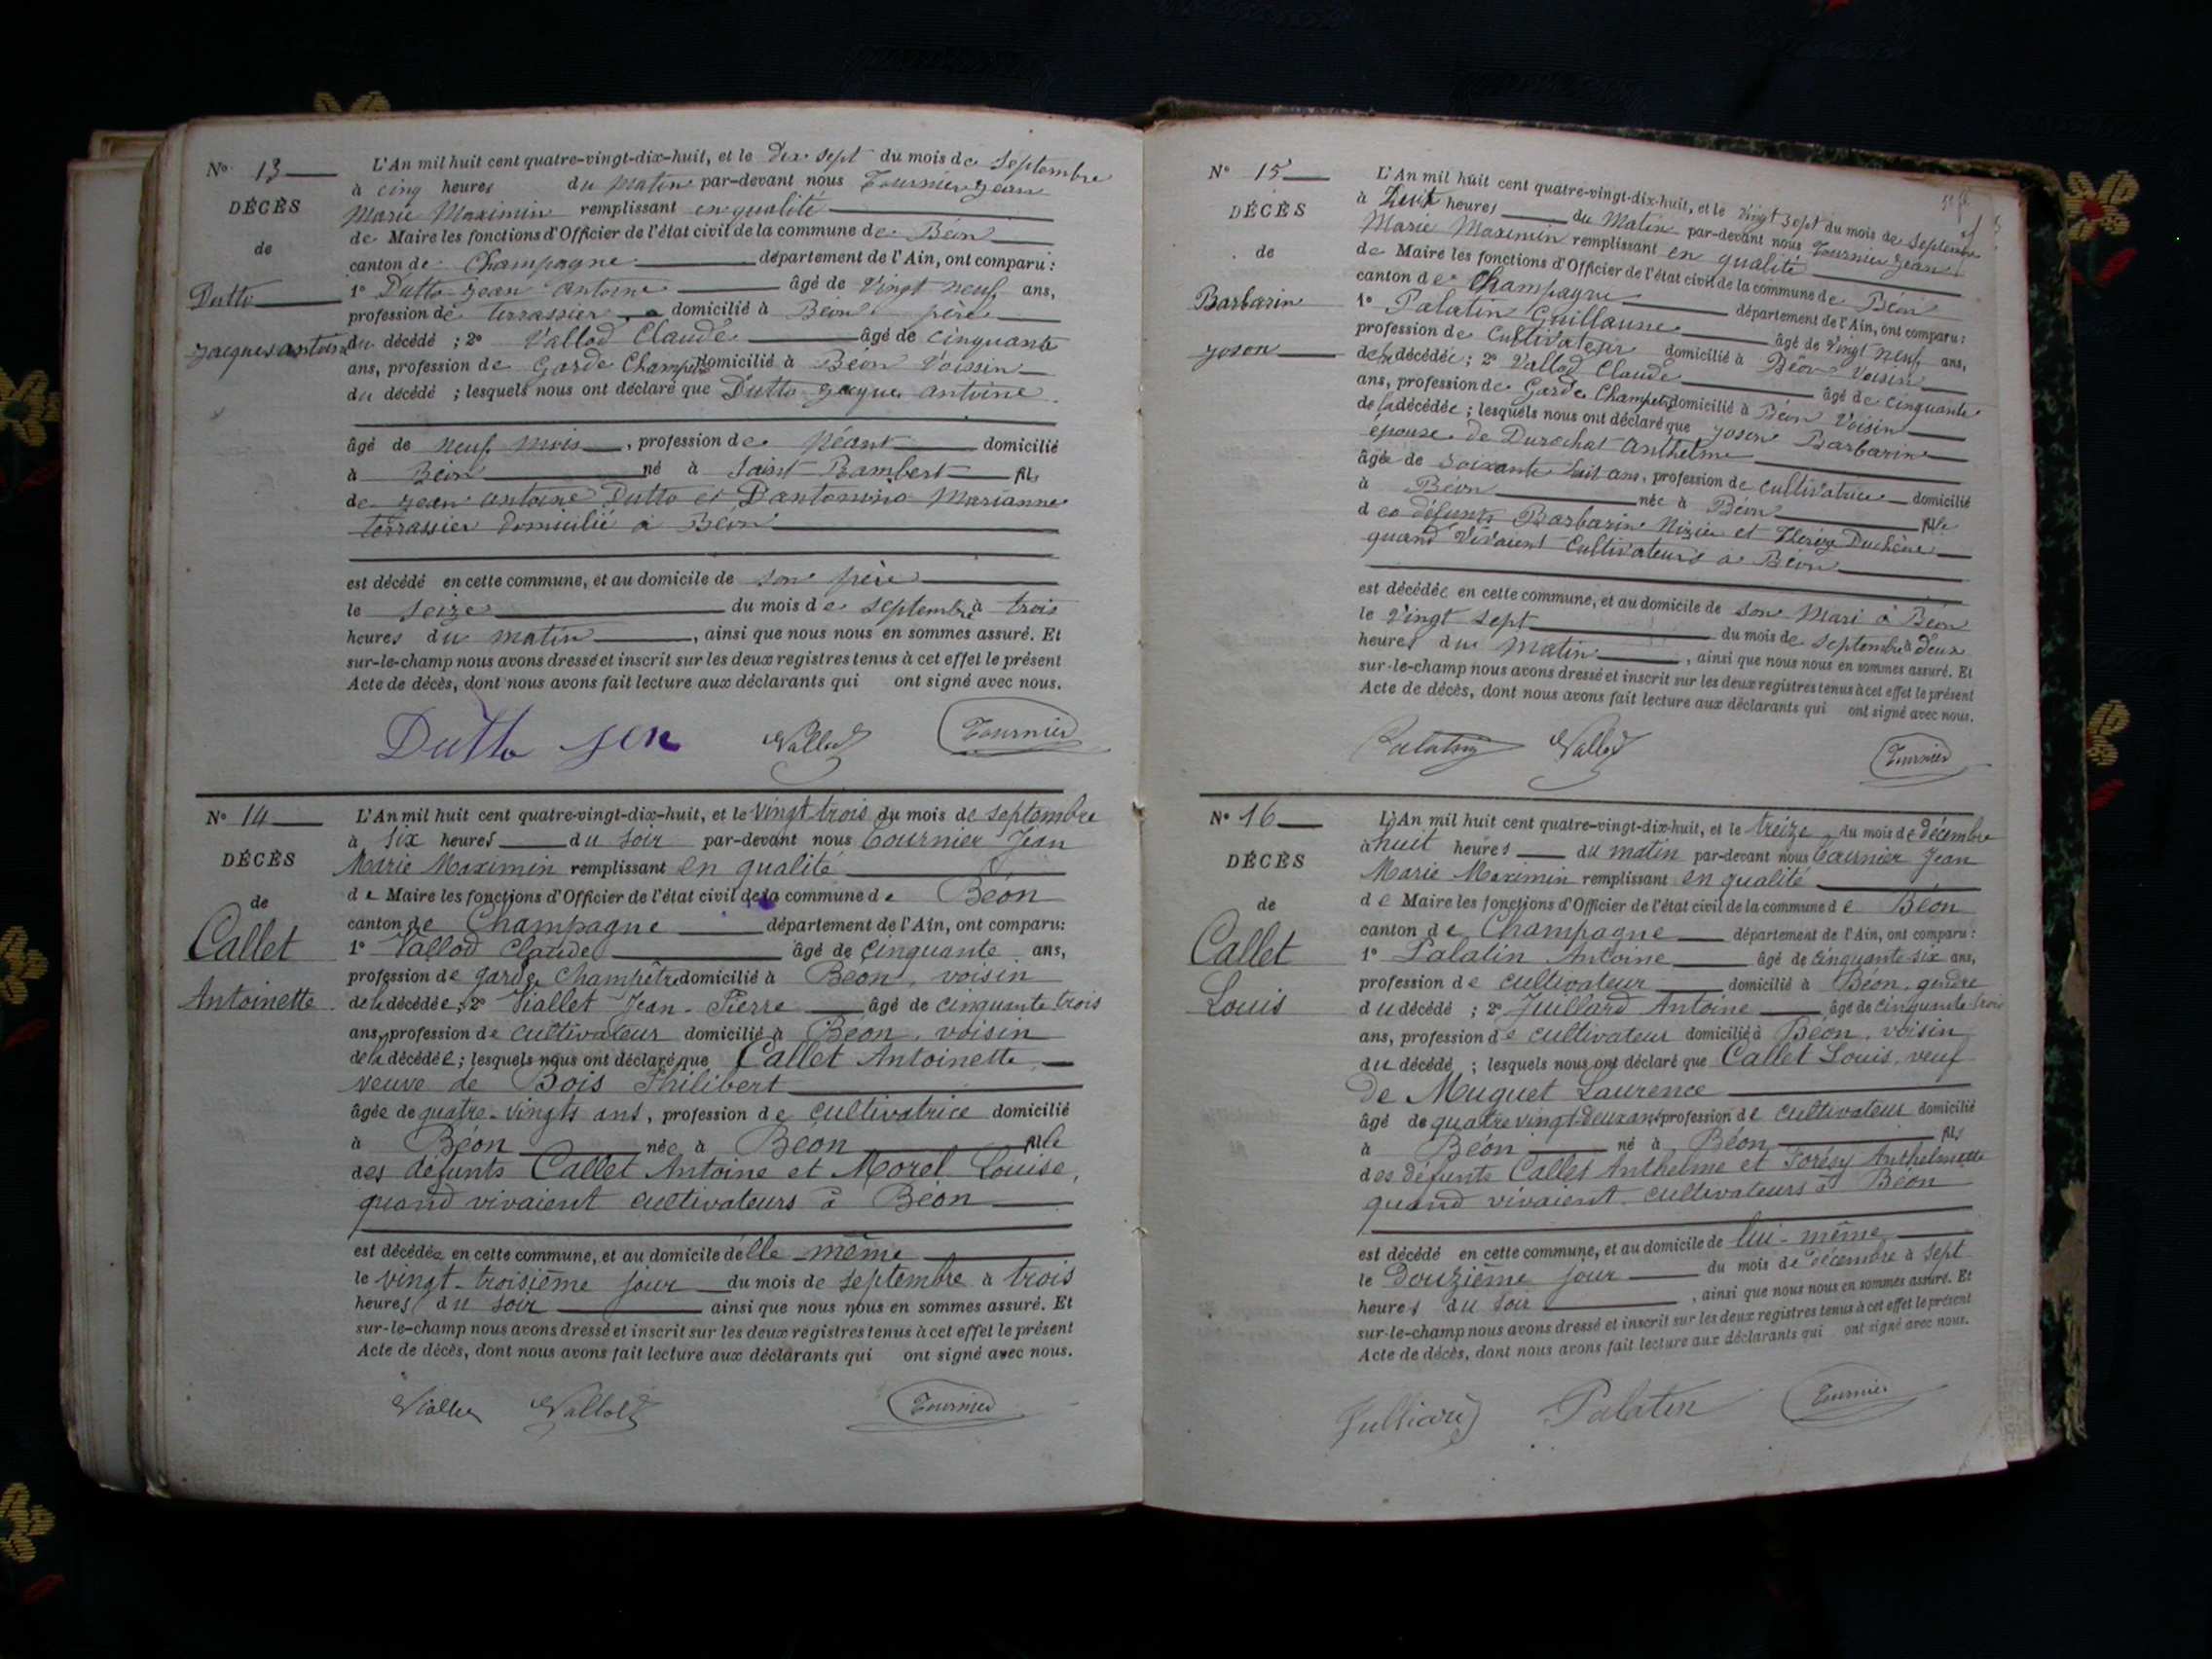 N° 13
DÉCÈS
de
Dutto
Jacques antoine
L'An mil huit cent quatre-vingt-dix-huit, et le dix sept du mois de Septembre
à cinq heures du matin par-devant nous Tournier Jean
Marie Maximin remplissant en qualité
de Maire les fonctions d'Officier de l'état civil de la commune de Béon
canton de Champagne département de l'Ain, ont comparu :
1° Dutto Jean antoine âgé de Vingt neuf ans,
profession de terrassier domicilié à Béon père
du décédé ; 2° Vallod Claude âgé de cinquante
ans, profession de Garde Champêtre domicilié à Béon Voissin
du décédé ; lesquels nous ont déclaré que Dutto Jacque antoine
âgé de neuf mois, profession de Néant domicilié
à Béon né à Saint Rambert fils
de Jean antoine Dutto et Dantonino Marianne
terrassier domicilié à Béon
est décédé en cette commune, et au domicile de son père
le seize du mois de Septembre à trois
heures du matin, ainsi que nous nous en sommes assuré. Et
sur-le-champ nous avons dressé et inscrit sur les deux registres tenus à cet effet le présent
Acte de décès, dont nous avons fait lecture aux déclarants qui ont signé avec nous.
Dutto Vallod Tournier
N° 14
DÉCÈS
de
Callet
Antoinette
L'An mil huit cent quatre-vingt-dix-huit, et le vingt trois du mois de septembre
à six heures du soir par-devant nous Tournier Jean
Marie Maximin remplissant en qualité
de Maire les fonctions d'Officier de l'état civil de la commune de Béon
canton de Champagne département de l'Ain, ont comparu:
1° Vallod Claude âgé de cinquante ans,
profession de garde champêtre domicilié à Béon, voisin
de la décédée ; 2° Viallet Jean-Pierre âgé de cinquante trois
ans, profession de cultivateur domicilié à Béon, voisin
de la décédée ; lesquels nous ont déclaré que Callet Antoinette,
veuve de Bois Philibert
âgée de quatre-vingts ans, profession de cultivatrice domicilié
à Béon née à Béon fille
des défunts Callet Antoine et Morel Louise,
quand vivaient cultivateurs à Béon
est décédée en cette commune, et au domicile d'elle même
le vingt-troisième jour du mois de septembre à trois
heures du soir ainsi que nous nous en sommes assuré. Et
sur-le-champ nous avons dressé et inscrit sur les deux registres tenus à cet effet le présent
Acte de décès, dont nous avons fait lecture aux déclarants qui ont signé avec nous.
Viallet Vallod Tournier
N° 15
DÉCÈS
de
Barbarin
Joson
L'An mil huit cent quatre-vingt-dix-huit, et le vingt sept du mois de Septembre
à huit heures du Matin par-devant nous Tournier Jean
Marie Maximin remplissant en qualité
de Maire les fonctions d'Officier de l'état civil de la commune de Béon
canton de Champagne département de l'Ain, ont comparu:
1° Palatin Guillaume âgé de vingt neuf ans,
profession de Cultivateur domicilié à Béon Voisin
de la décédée ; 2° Vallod Claude âgé de cinquante
ans, profession de Garde Champêtre domicilié à Béon Voisin
de la décédée ; lesquels nous ont déclaré que Joson Barbarin
épouse de Durochat Anthelme
âgée de soixante huit ans, profession de cultivatrice domicilié
à Béon née à Béon fille
des défunts Barbarin Nizier et Duchêne
quand Vivaient Cultivateurs à Béon
est décédée en cette commune, et au domicile de son Mari à Béon
le Vingt sept du mois de septembre à deux
heures du matin, ainsi que nous nous en sommes assuré. Et
sur-le-champ nous avons dressé et inscrit sur les deux registres tenus à cet effet le présent
Acte de décès, dont nous avons fait lecture aux déclarants qui ont signé avec nous.
Palatin Vallod Tournier
N° 16
DÉCÈS
de
Callet
Louis
L'An mil huit cent quatre-vingt-dix-huit, et le treize du mois de décembre
à huit heures du matin par-devant nous Tournier Jean
Marie Maximin remplissant en qualité
de Maire les fonctions d'Officier de l'état civil de la commune de Béon
canton de Champagne département de l'Ain, ont comparu :
1° Palatin Antoine âgé de cinquante six ans,
profession de cultivateur domicilié à Béon, gendre
du décédé ; 2° Juillard Antoine âgé de cinquante trois
ans, profession de cultivateur domicilié à Béon, voisin
du décédé ; lesquels nous ont déclaré que Callet Louis, veuf
de Muguet Laurence
âgé de quatre vingt-deux ans, profession de cultivateur domicilié
à Béon né à Béon fils
des défunts Callet Anthelme et Forésy Anthelmette
quand vivaient cultivateurs à Béon
est décédé en cette commune, et au domicile de lui-même
le douzième jour du mois de décembre à sept
heures du soir, ainsi que nous nous en sommes assuré. Et
sur-le-champ nous avons dressé et inscrit sur les deux registres tenus à cet effet le présent
Acte de décès, dont nous avons fait lecture aux déclarants qui ont signé avec nous.
Julliard Palatin Tournier